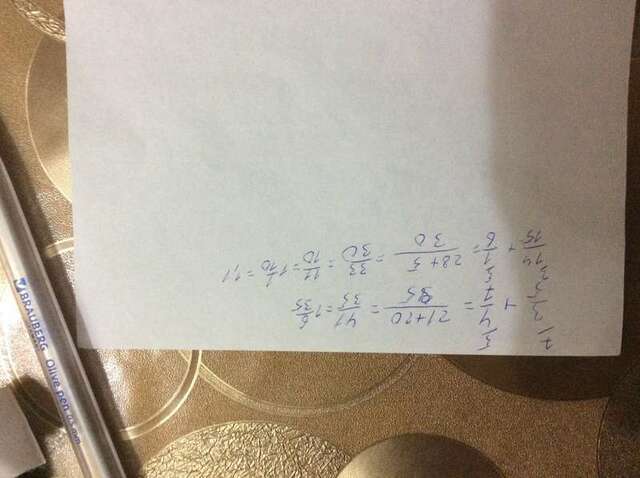 7 5
3/5 + 4/7 = 21+20/35 = 41/35 = 1 6/35
3 5
14/15 + 1/6 = 28+5/30 = 33/30 = 11/10 = 1 1/10 = 1,1
BRAUBERG Olive pen